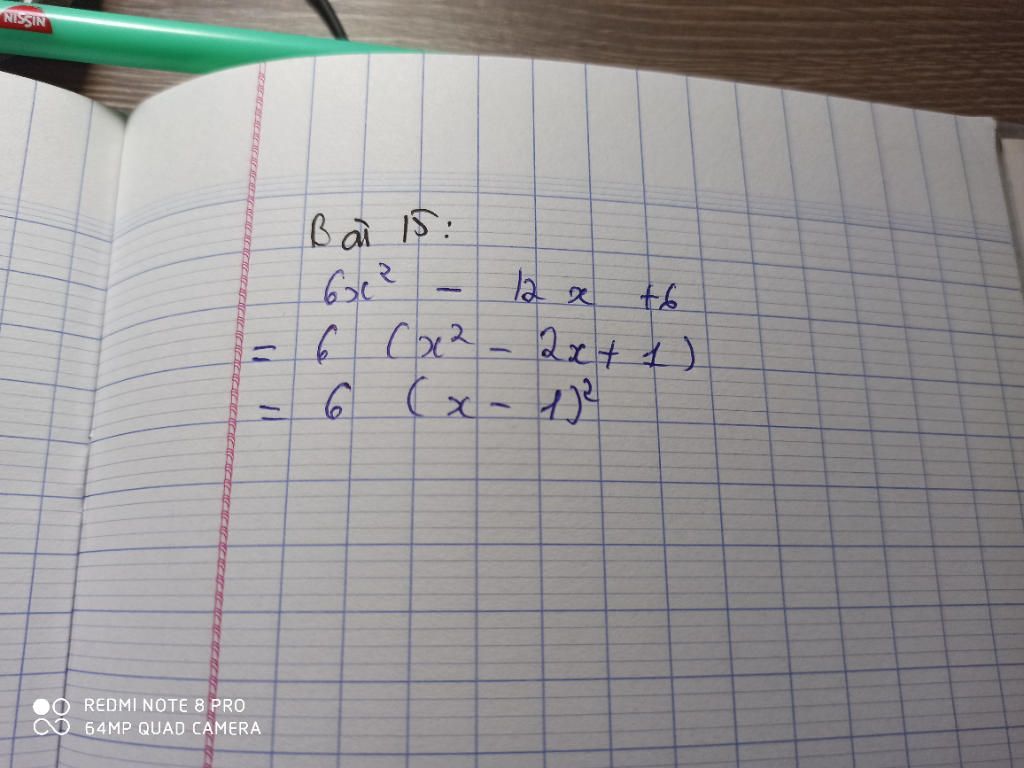 NISSIN
Bài 15:
6x² - 12x + 6
= 6 (x² - 2x + 1)
= 6 (x - 1)²
REDMI NOTE 8 PRO
64MP QUAD CAMERA